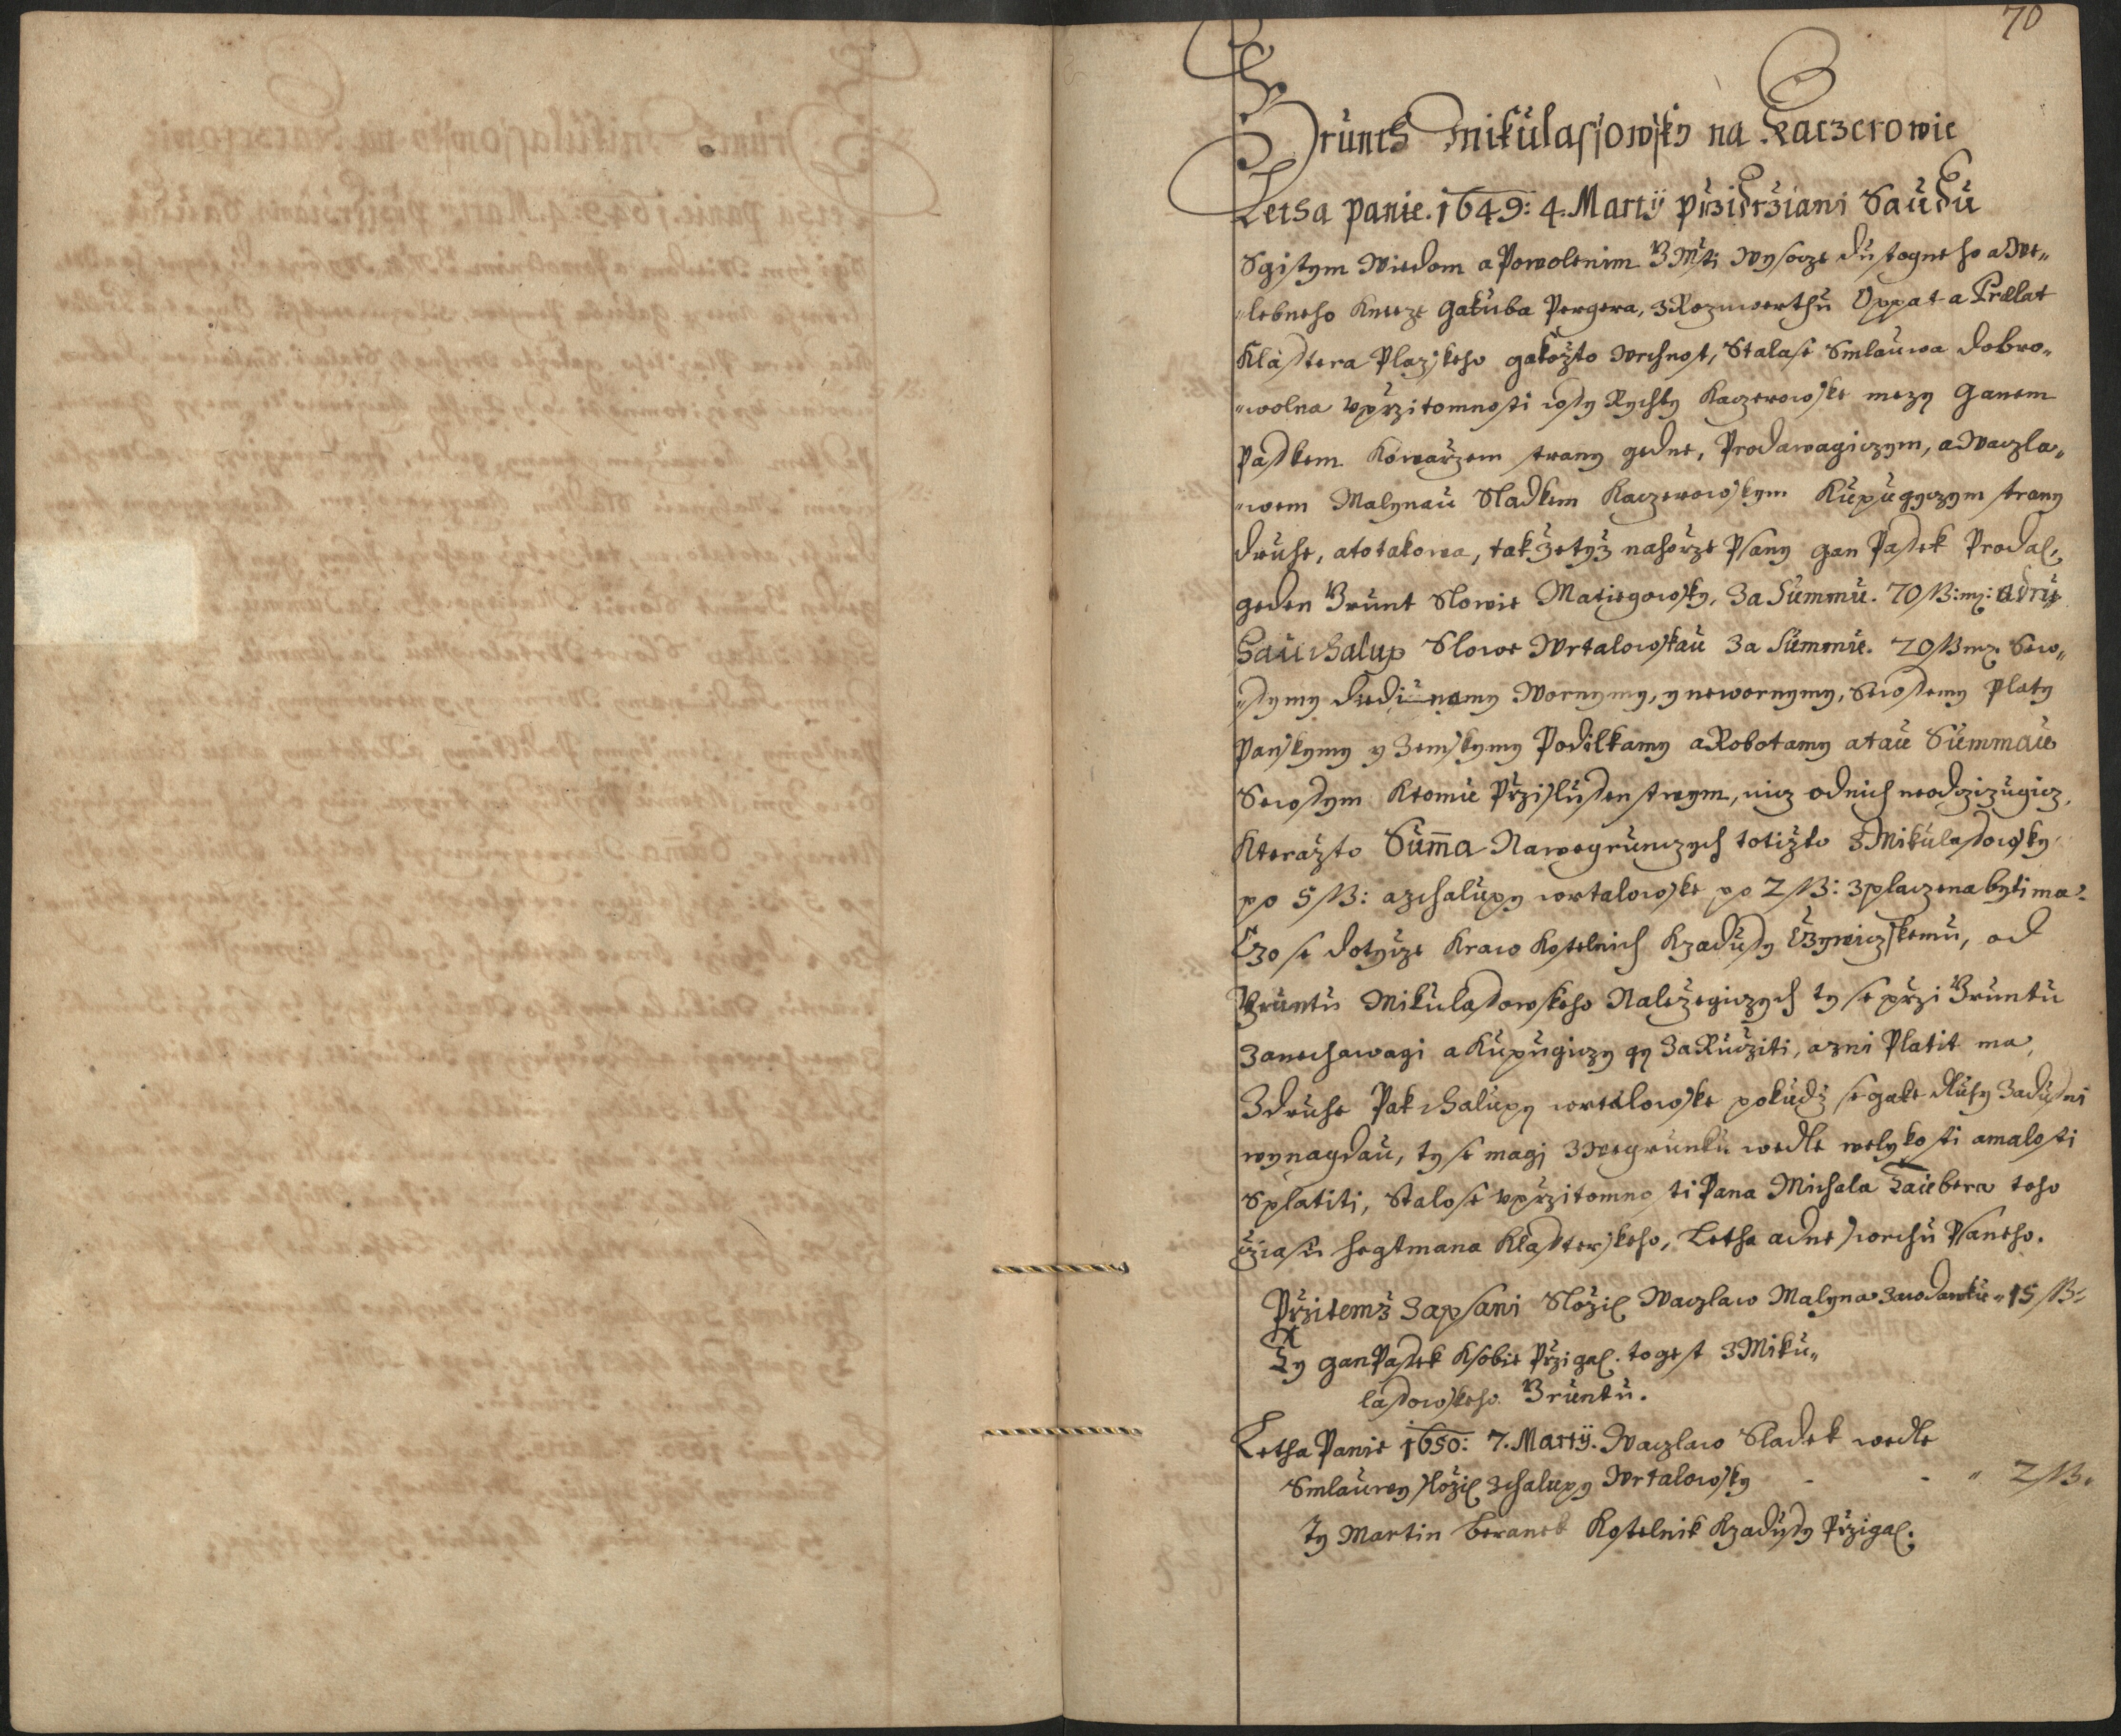 70
Grunth Mikulassowsky na Kaczerowie
Letha panie. 1649: 4. Martij przidrziani Saudu
Sgistym Wiedom a Powolenim G Mti Wysocze dustogneho a We„
„lebneho Knieze Gakuba Pergera, z Rozmverthu Oppat a Prælat
Klasstera Plazskeho gakožto Wrchnost, Stala se Smlauwa dobro„
„wolna vprzitomnosti wssy Rychty Kaczerowske mezy Ganem
Passkem Kowařzem strany gedne, Prodawagiczym, a Waczla„
„wem Malynau Sladkem Kaczerowskym Kupugyczym strany
druhe, a to takowa, takže tyž nahořze Psany Gan Passek Prodal,
geden Grunt Slowie Matiegowsky, Za Summu. 70 ß: m: a dru„
hau chalup Slowe Wrtalowskau Za Summu. 20 ß m. Sew„
„ssymy diedinamy Wornymy, y newornymy, Sewssemy Platy
Panskymy y Zemskymy Podilkamy a Robotamy a tau Summau
Sewssym Ktomu Przislussenstwym, nicz odnich neodczizugicz,
Kteražto Suma Nawegrunczych totižto z Mikulassowsky
po 5 ß: a z chalupy wrtalowske po 2 ß: zplaczena byti ma:
Czo se dotycze Kraw Kostelnich Kzadussy Czywiczskemu, od
Gruntu Mikulassowskeho Naležegiczych ty se przi Gruntu
Zanechawagi a Kupugiczy gy Za Rucziti, a zni Platit ma,
Zdruhe Pak chalupy wrtalowske pokudž se gake dluhy Zadussni
wynagdau, ty se magj z wegrunku wedle welykosti a malosti
Splatiti, Stalo se vprzitomnosti Pana Michala Kaubera toho
cziasu hegtmana Klassterskeho, Letha a dne swrchu Psaneho.
Přzitemž Zapsani Složil Waczlaw Malyna Zawdanku „ 15 ß:
Ty Gan Passek Ksobie Přzigal. to gest z Miku„
lassowskeho Gruntu.
Letha Panie 1650: 7. Martij. Waczlaw Sladek wedle
Smlauwy složil z chalupy Wrtalowsky - - „ 2 ß.
Ty Martin Beranek Kostelnik Kzadussy Přzigal.